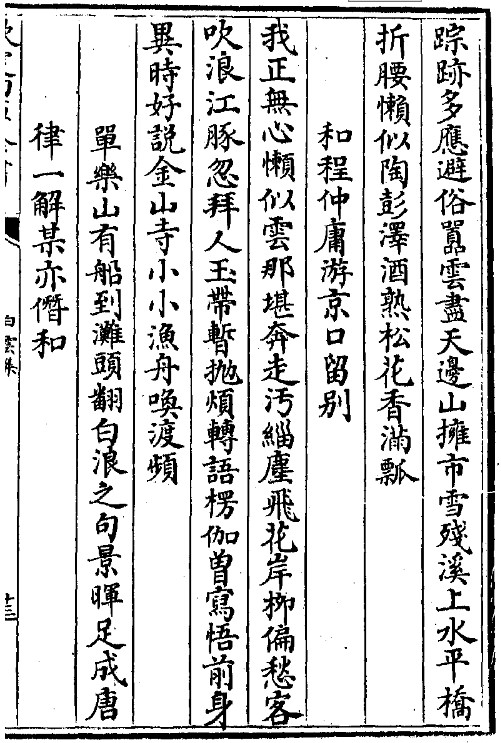 踪跡多應避俗囂雲盡天邊山擁市雪殘溪上水平橋
折腰懶似陶彭澤酒熟松花香滿瓢
和程仲庸游京口留别
我正無心懶似雲那堪奔走汚緇塵飛花岸栁偏愁客
吹浪江豚忽拜人玉帶暫抛煩轉語楞伽曽寫悟前身
異時好説金山寺小小漁舟喚渡頻
單樂山有船到灘頭翻白浪之句景暉足成唐
律一解某亦僭和
白雲集